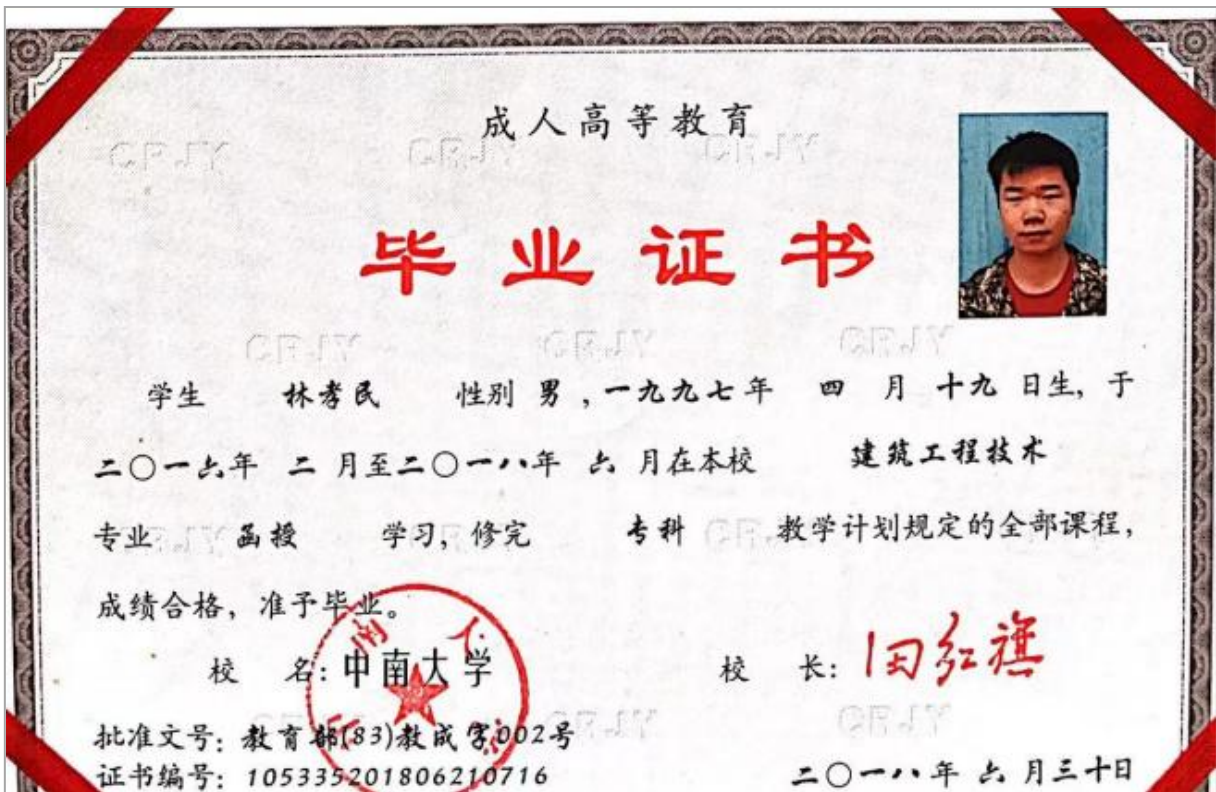 成人高等教育
毕业证书
学生 林孝民 性别 男，一九九七年 四 月 十九 日生，于
二〇一六年 二 月至二〇一八年 六 月在本校 建筑工程技术
专业 函授 学习，修完 专科 教学计划规定的全部课程，
成绩合格，准予毕业。
校 名：中南大学 校 长：田红旗
批准文号：教育部(83)教成字002号
证书编号：105335201806210716 二〇一八年 六 月三十日